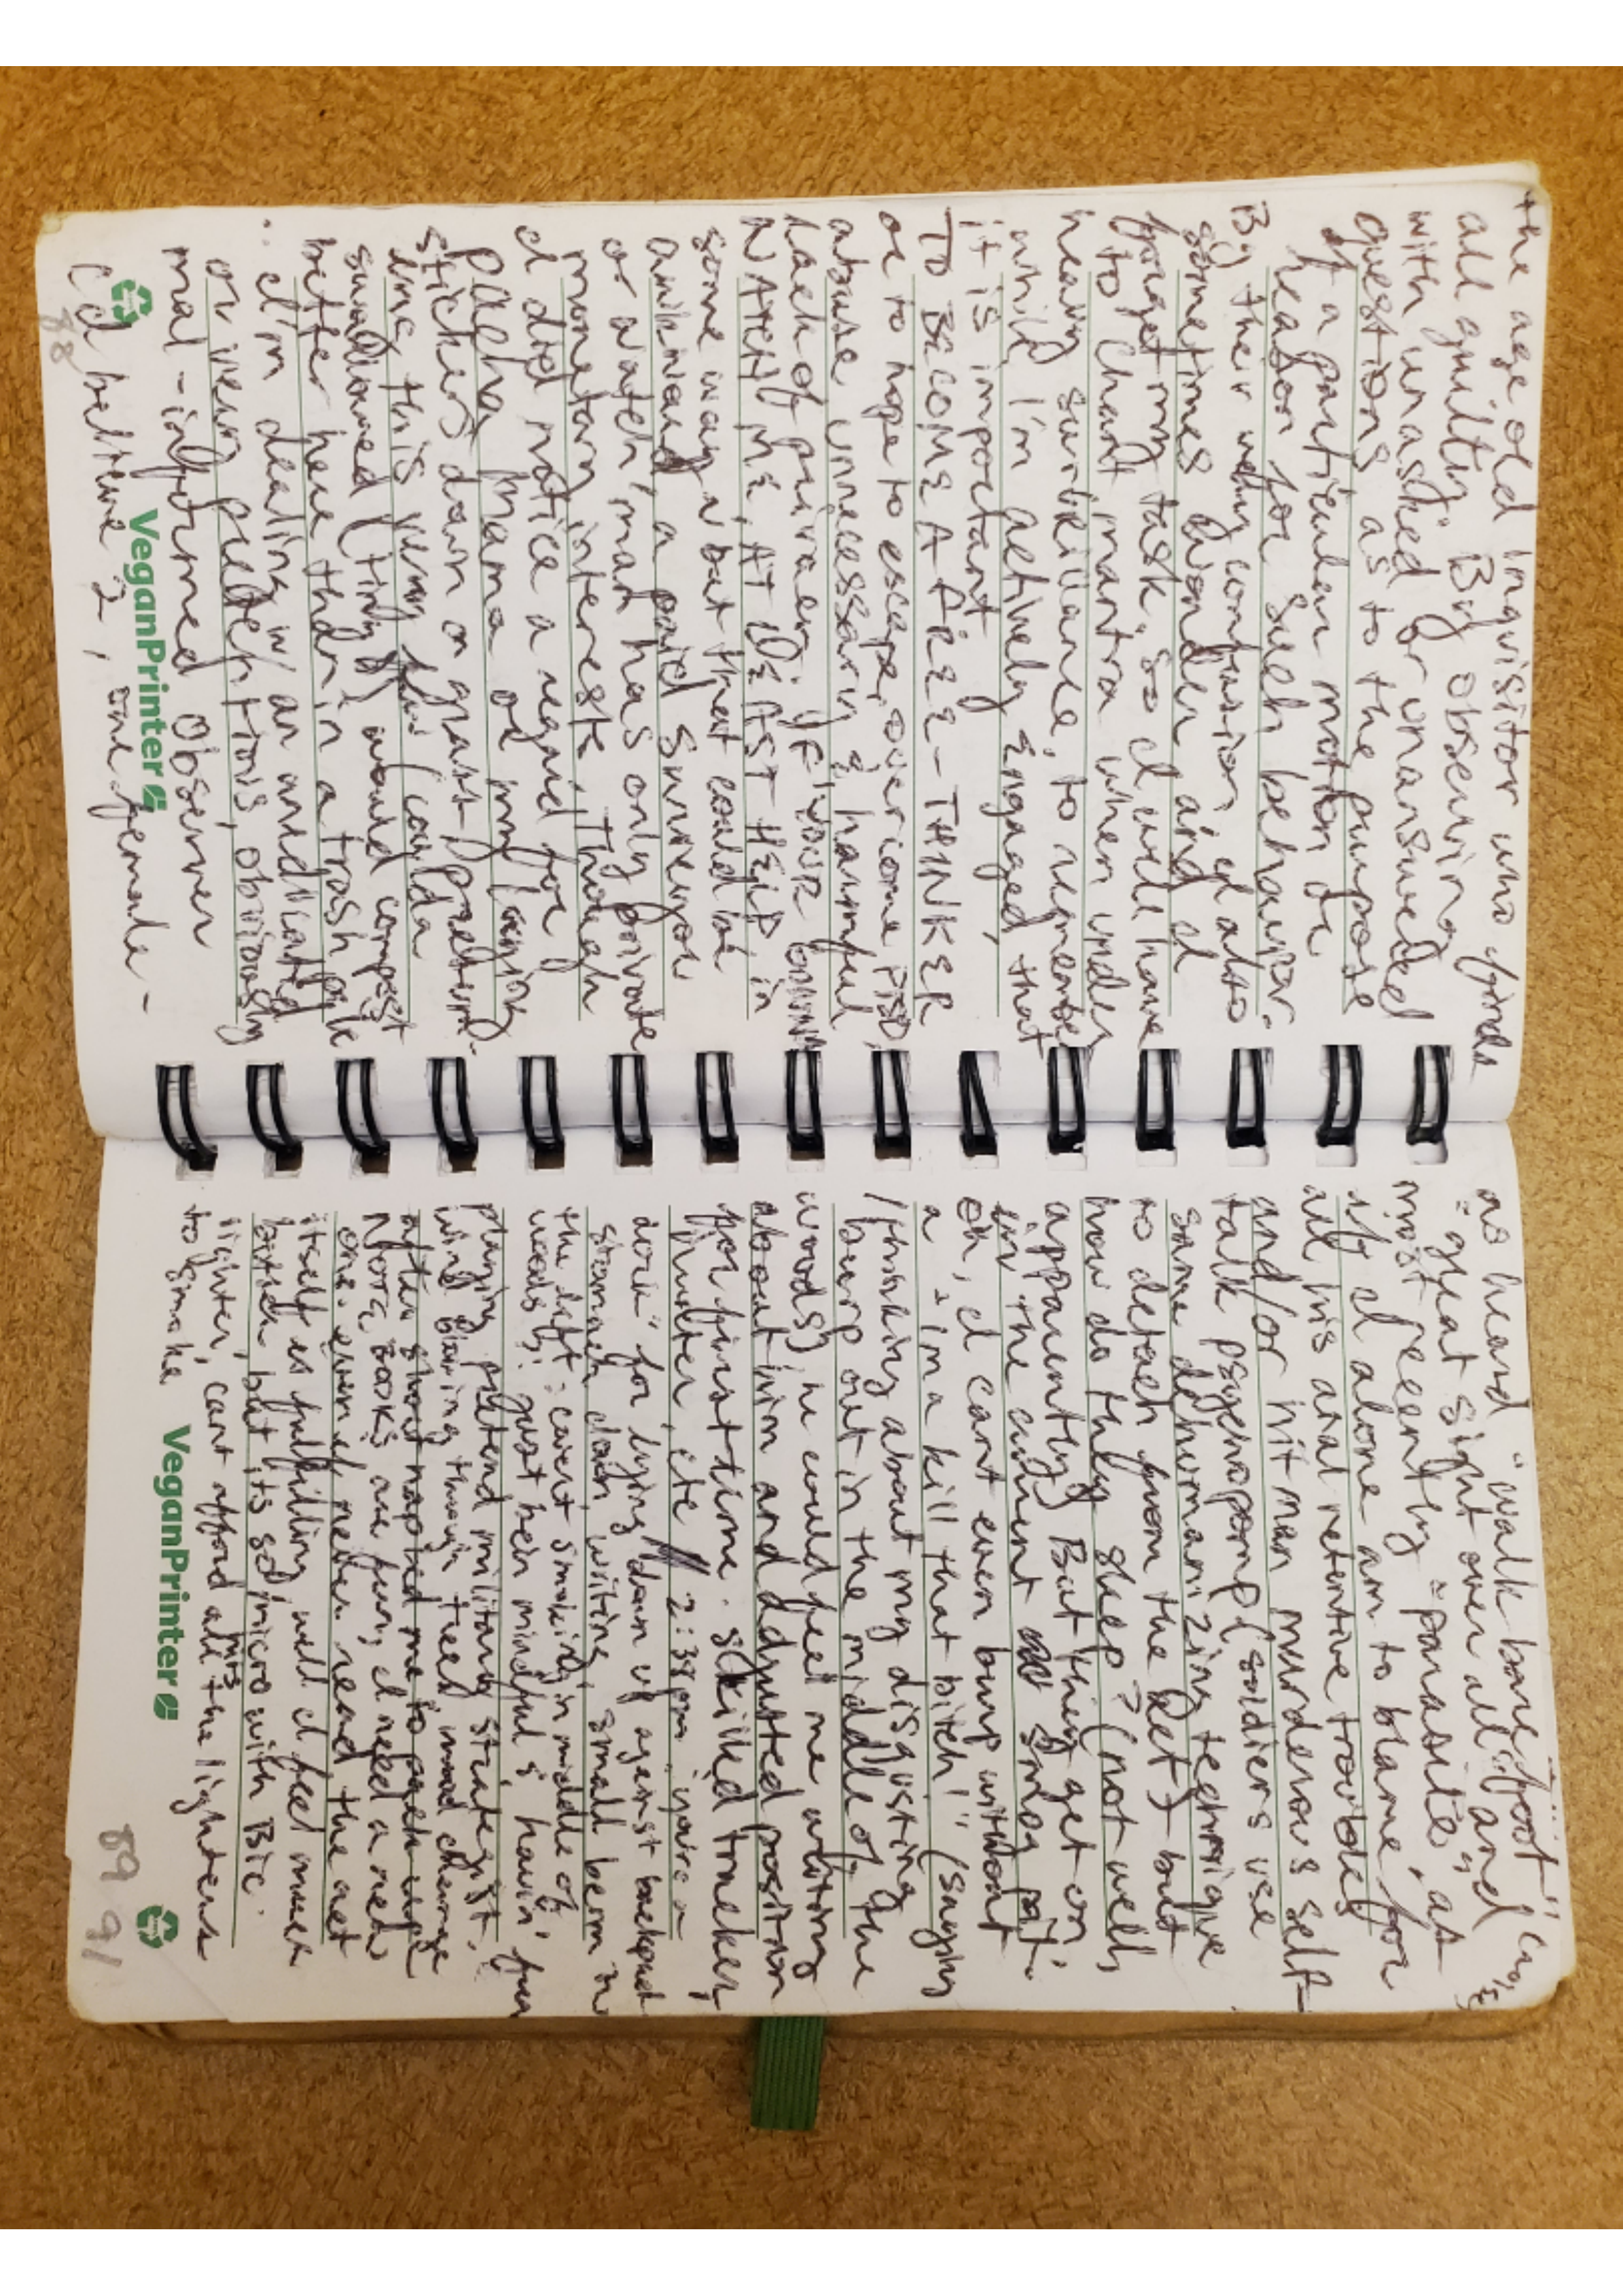 the age old inquisitor who finds
all guilty. By observing
with unasked or unanswered
questions as to the purpose
of a particular motion or
reason for such behavior.
By their confusion, I also
sometimes wonder and I
forget my task. so I will have
to chant mantra when under
heavy surveillance, to remember
while I'm actively engaged, that
it is important
TO BECOME A FREE-THINKER
or to hope to escape, overcome PTSD,
abuse, unnecessary & harmful
lack of privacy. IF YOUR
WATCH ME, AT LEAST HELP, in
some way, but that could be
awkward, a paid surveyor
or watch man has only private
monetary interests. Though
I did notice a regard for
pacha mama or my laying
stickers down on grass preturb-
ing this very (coulda
swallowed (tiny) would compost
better here than in a trash pile
.. I'm dealing w/ an
or very obviously
mal-informed observer
(I believe 2, one female -
VeganPrinter
88
as heard "walk barefoot" in,
"great sight over all" and
most recently "parasite", as
if I alone am to blame for
all his anal retentive troubles
and/or hit man murderous self-
talk psychopomp (soldiers use
same dehumanizing technique
to detach from the act) but
how do they sleep? (not well,
apparently) But they get on,
in the current
Oh, I cant even burp without
a "ima kill that bitch!" (saying
/thinking about my disgusting
burp out in the middle of the
woods), he could feel me writing
about him and adjusted position
for first time. skilled tracker,
hunter, etc // 2:38pm "you're a
dork" for lying down up against backpack
stomach down, writing, small berm to
the left: covert smoking in middle of
woods: just bein mindful & havin' fun
playing pretend military strategist,
wind blowing through trees mood change
after short nap led me to
NOTE BOOKS are fun, I need a new
one. even if never read the act
itself is fulfilling, well I feel much
better but its so micro with BIC
lighter, cant afford all the lighters
to smoke
VeganPrinter
89 91